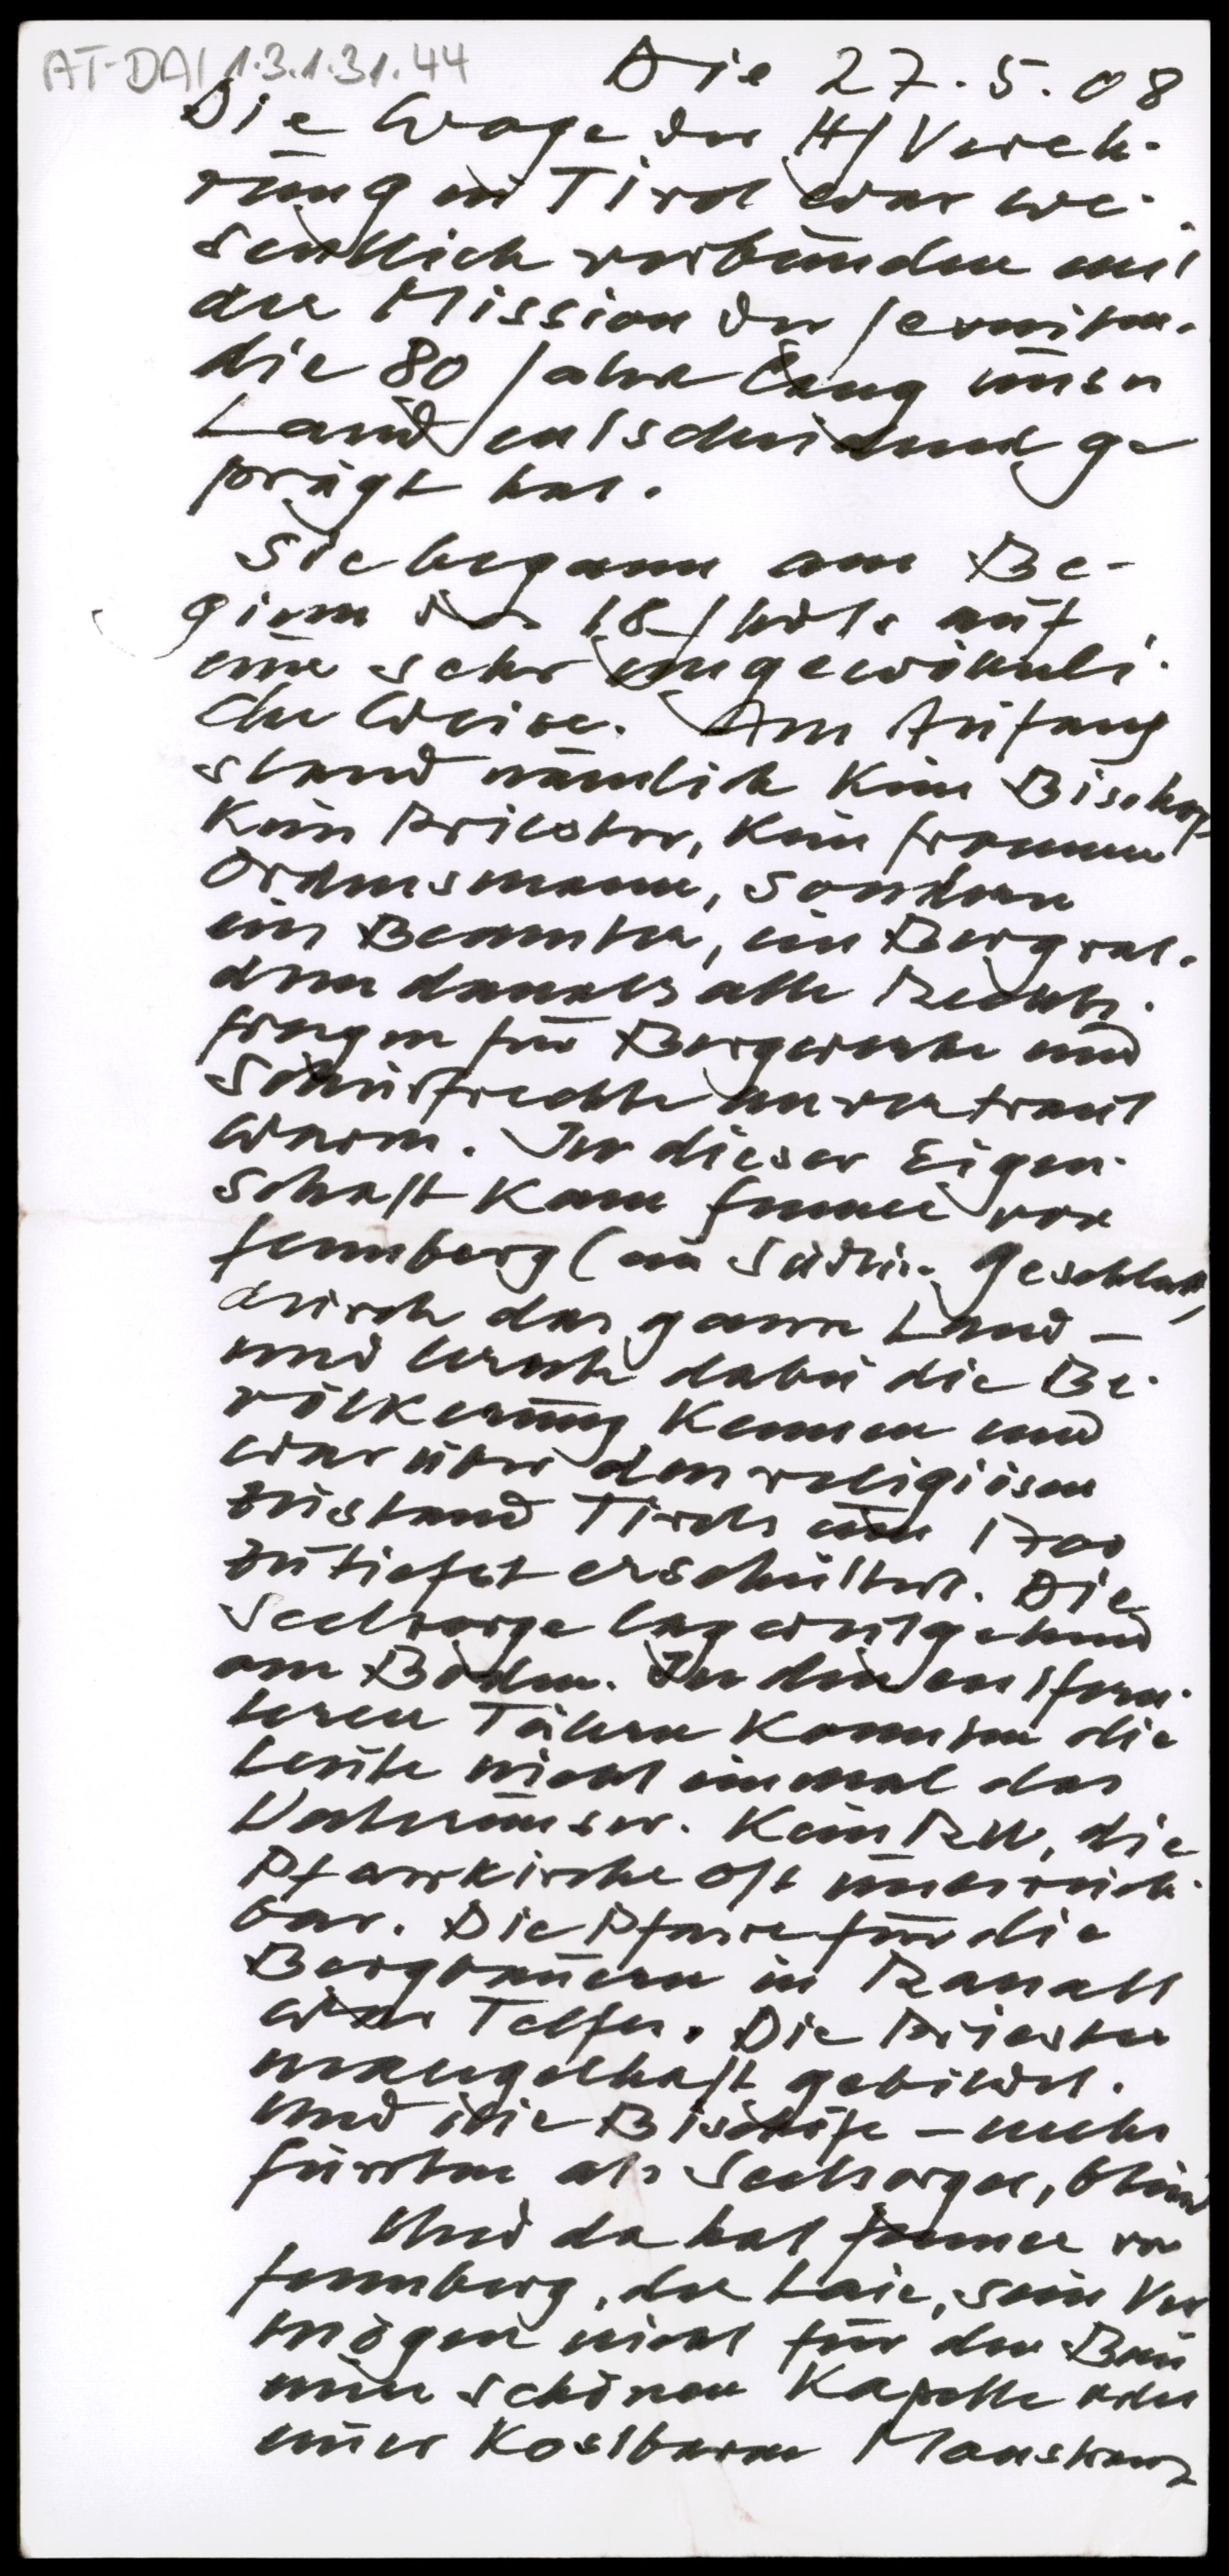 AT-DAI 1.3.1.31.44
Die 27.5.08
Die Woge der HJ Vereh-
rung in Tirol war we-
sentlich verbunden mit
der Mission der Jesuiten.
die 80 Jahre lang unser
Land entscheidend ge
prägt hat.
Sie begann am Be-
ginn des 18. Jhdts auf
eine sehr ungewöhnli-
che Weise. Am Anfang
stand nämlich kein Bischof
kein Priester, kein frommer
Ordensmann, sondern
ein Beamter, ein Bergrat.
dem damals alle Rechts-
fragen für Bergwerke und
Schürfrechte anvertraut
waren. In dieser Eigen-
schaft kam Fenner von
Fennberg (ein Südtir. Geschlecht)
durch das ganze Land –
und lernte dabei die Be-
völkerung kennen und
war über den religiösen
Zustand Tirols um 1700
zutiefst erschüttert. Die
Seelsorge lag weitgehend
am Boden. In den entfern-
teren Tälern konnten die
Leute nicht einmal das
Vaterunser. Kein RU, die
Pfarrkirche oft unerreich-
bar. Die Pfarre für die
Bergbauern in Ranalt
war Telfes. Die Priester
mangelhaft gebildet.
Und die Bischöfe – mehr
Fürsten als Seelsorger, blind
Und da hat Fenner von
Fennberg, der Laie, sein Ver
mögen nicht für den Bau
einer schönen Kapelle oder
einer kostbaren Monstranz